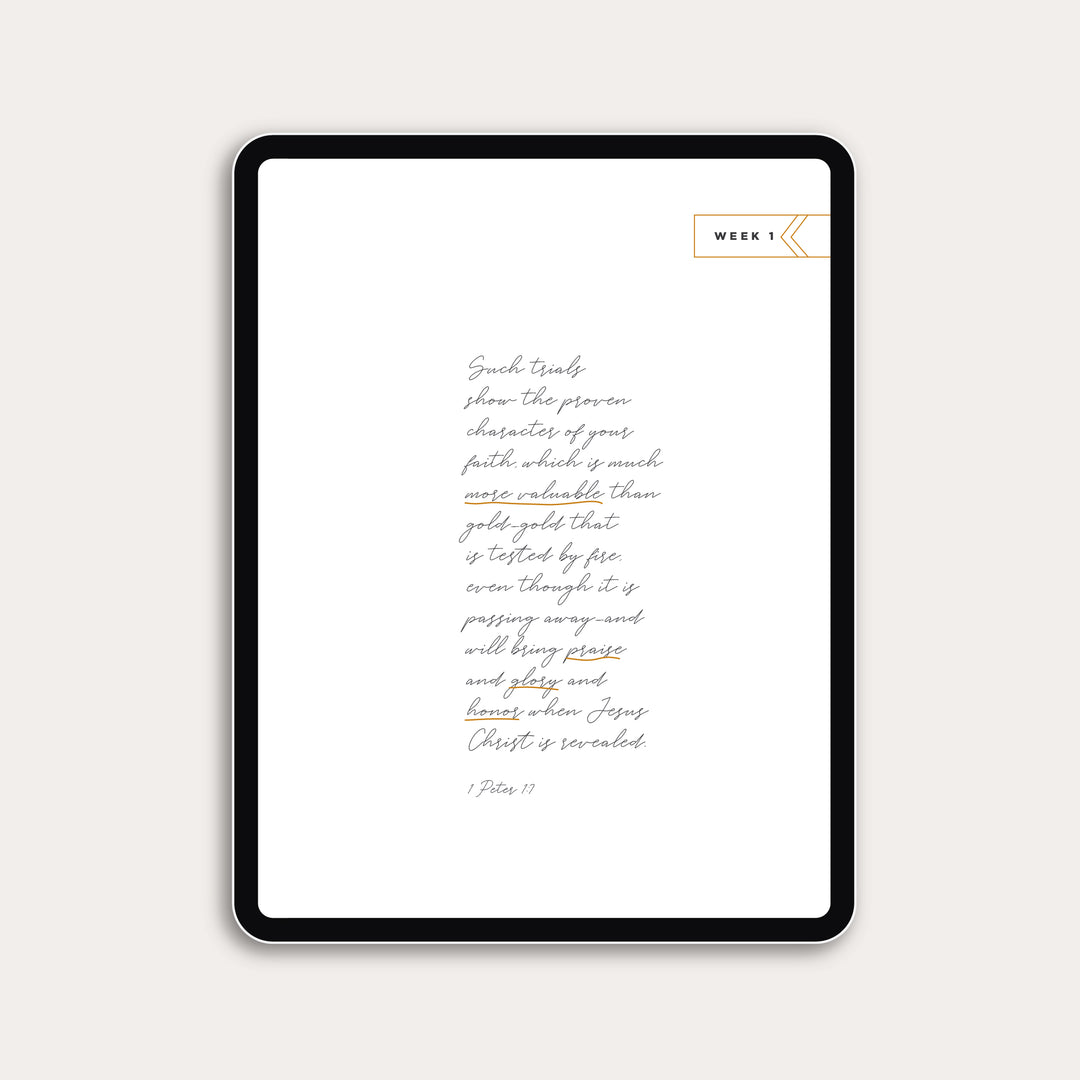 WEEK 1
Such trials
show the proven
character of your
faith, which is much
more valuable than
gold-gold that
is tested by fire,
even though it is
passing away-and
will bring praise
and glory and
honor when Jesus
Christ is revealed.
1 Peter 1:7